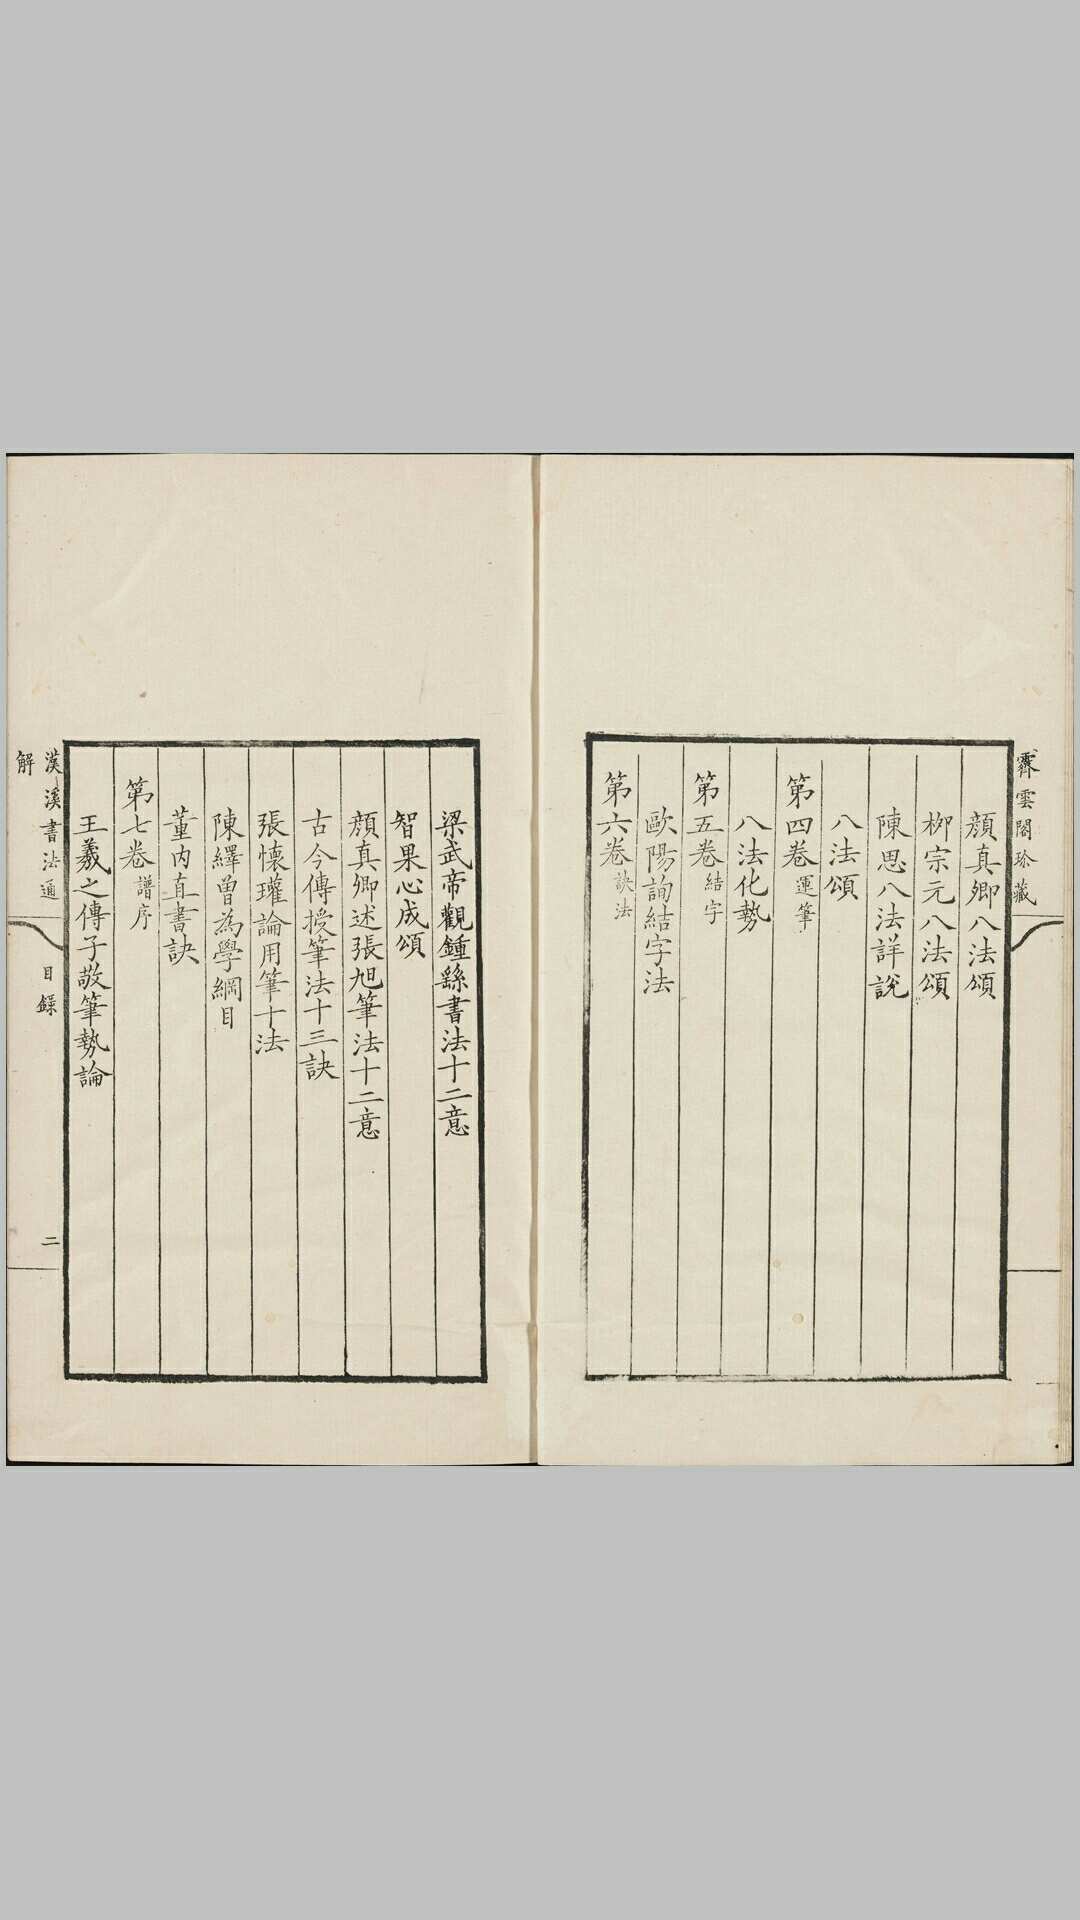 霽雲閣珍藏
顔真卿八法頌
栁宗元八法頌
陳思八法詳說
八法頌
第四卷運筆
八法化勢
第五卷結字
歐陽詢結字法
第六卷訣法
梁武帝觀鍾繇書法十二意
智果心成頌
顔真卿述張旭筆法十二意
古今傳授筆法十三訣
張懷瓘論用筆十法
陳繹曾為學綱目
董内直書訣
第七卷譜序
王羲之傳子敬筆勢論
漢溪書法通
解
目錄
二